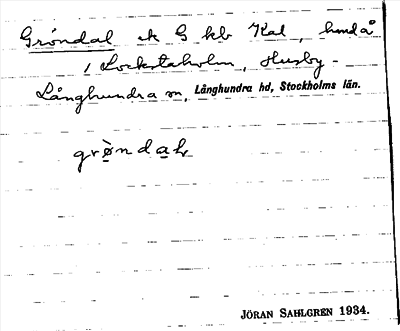 Gröndal ek G kb Kal, hmd å
1 Lockstaholm, Husby-
Långhundra sn, Långhundra hd, Stockholms län.
grön dal
JÖRAN SAHLGREN 1934.